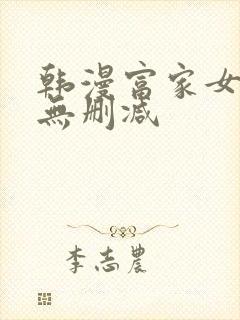 韩漫富家女
無删减
李志農